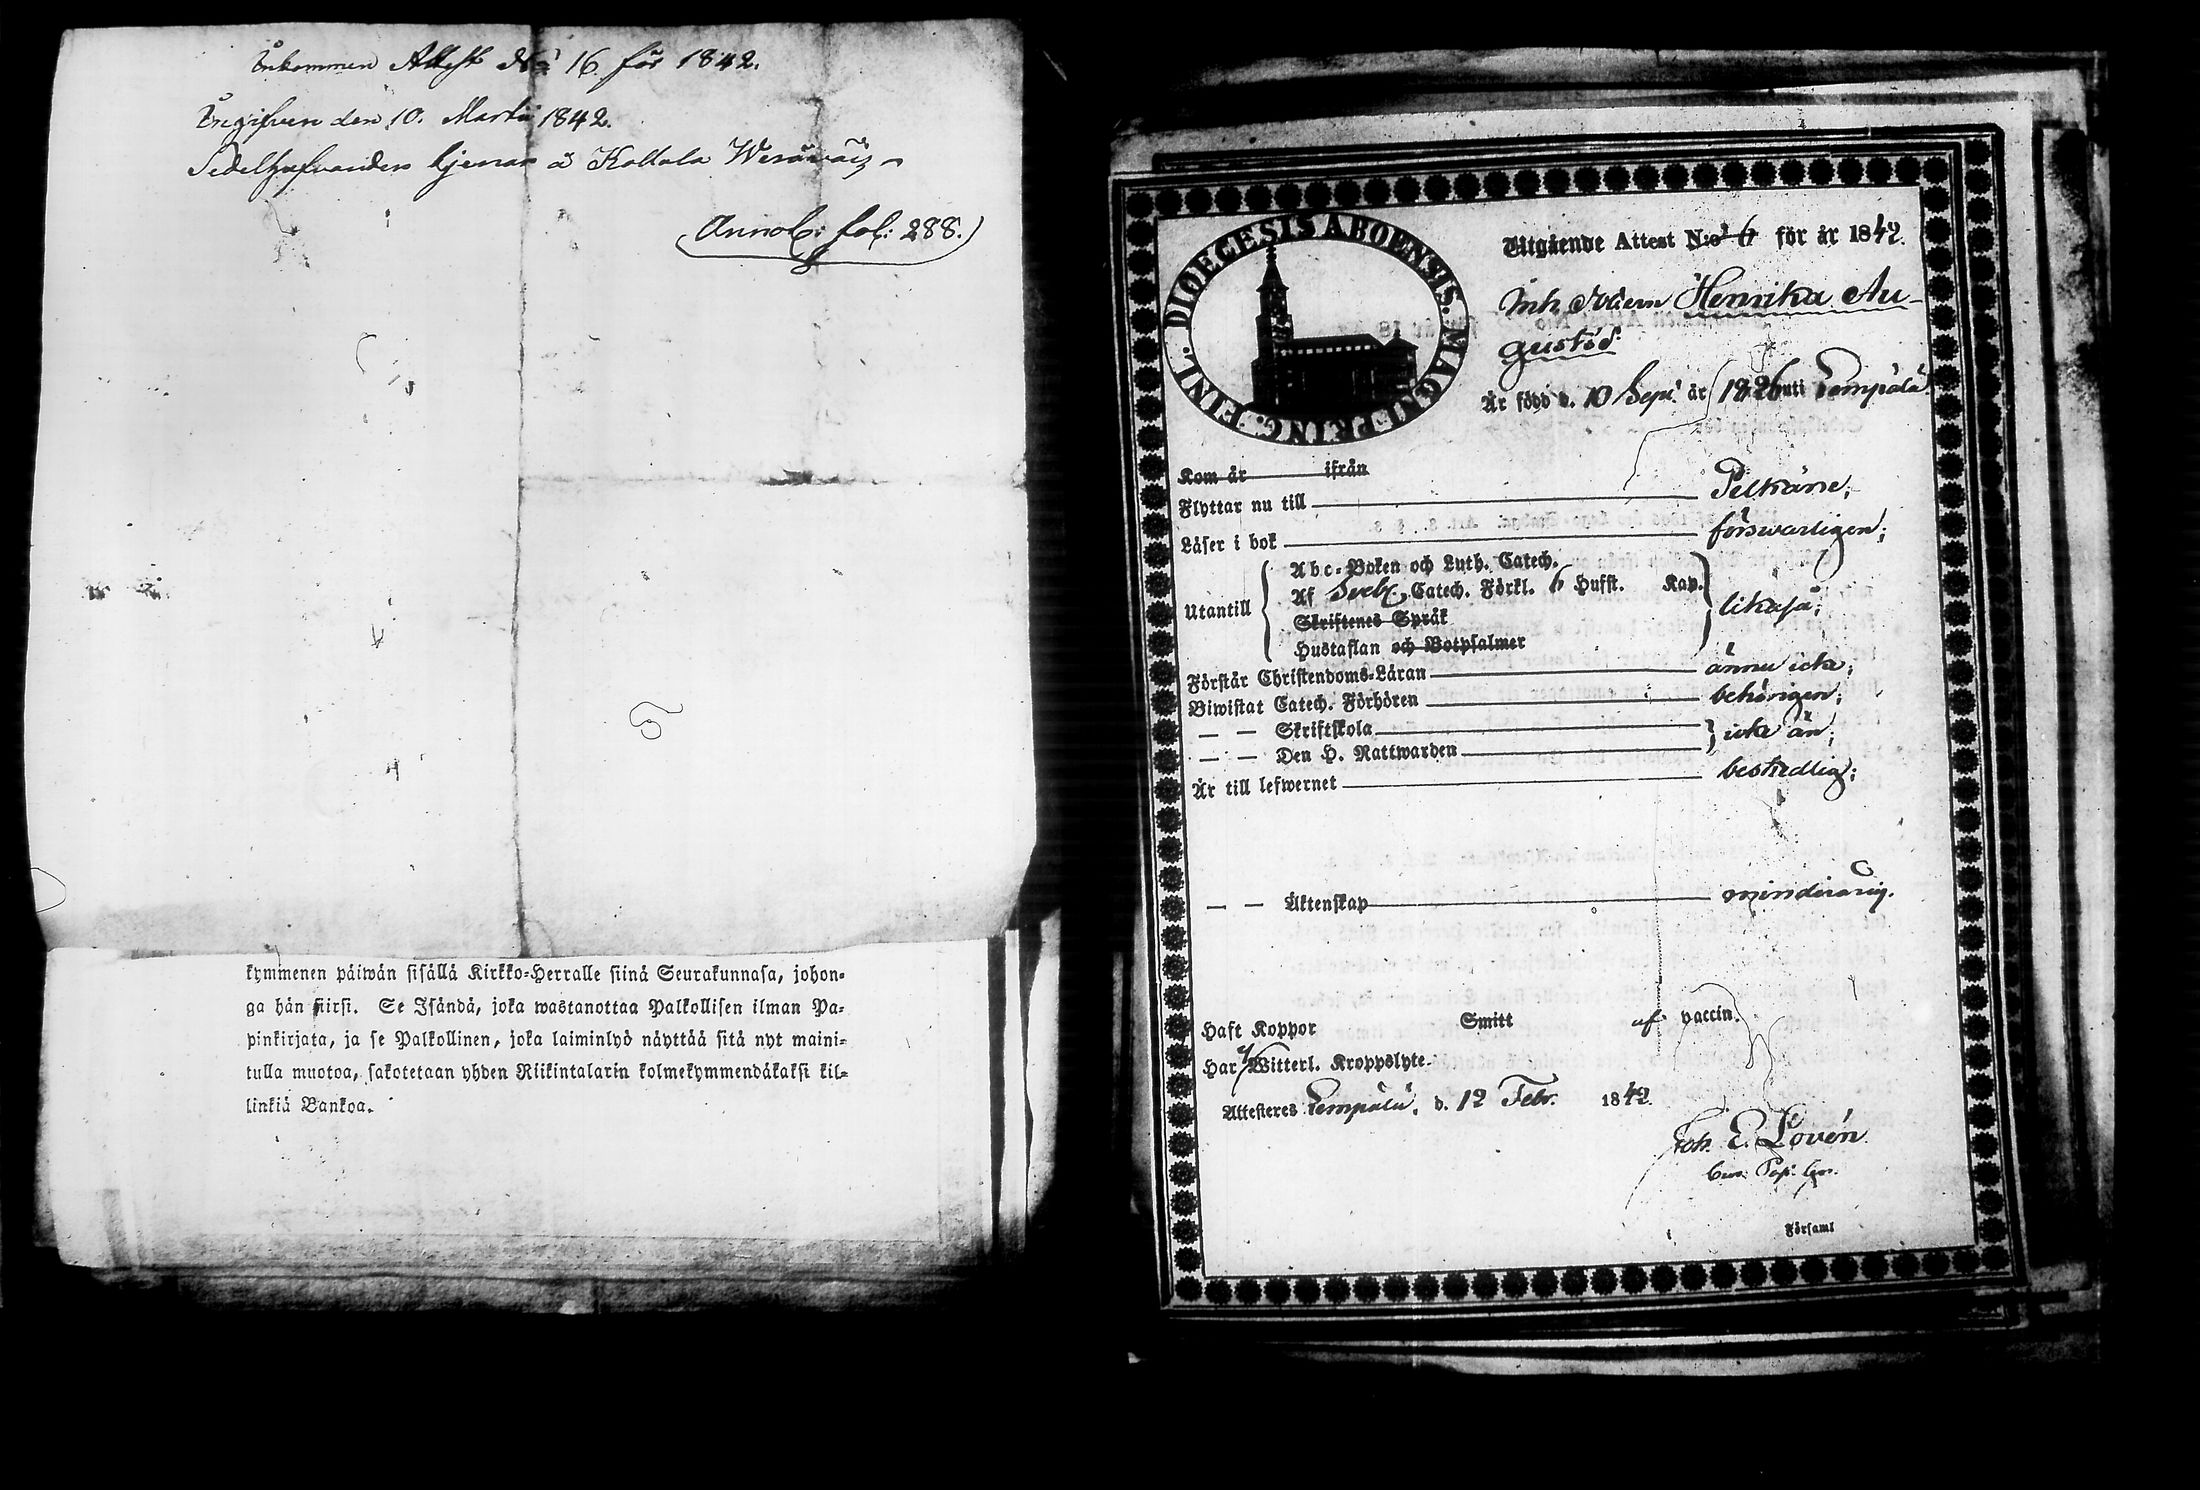 Inkommen Attest No 16 för 1842.
Ingifven den 10. Martii 1842.
Sedelhafvanden tjenar å Kollola
Annot: fol: 288.
kymmenen päiwän sisällä Kirkko-Herralle siinä Seurakunnasa, johon-
ga hän siirsi. Se Isändä, joka wastanottaa Palkollisen ilman Pa-
pinkirjata, ja se Palkollinen, joka laiminlyö näyttää sitä nyt maini-
tulla muotoa, sakotetaan yhden Riikintalarin kolmekymmendäkaksi kil-
linkiä Bankoa.
DIOECESIS ABOENSIS. MAGNI PRINC. FINL.
Utgående Attest N:o 6 för år 1842.
Inh. Henrika Au-
gustsd:
Är född d. 10 Sept: år 1826 uti Lempälä
Kom år ifrån
Flyttar nu till Pelkäne;
Läser i bok förswarligen;
Utantill
Abc-Boken och Luth. Catech.
Af Sveb. Catech. Förkl. 6 Hufst. Kap.
Skriftenes Språk
likaså;
Hustaflan och Botpsalmer
Förstår Christendoms-Läran ännu icke;
Biwistat Catech. Förhören behörigen;
— — Skriftskola
icke än;
— — Den H. Nattwarden
Är till lefwernet beskedlig;
— — Äktenskap minderårig.
Haft Koppor Smitt af vaccin.
Har Witterl. Kroppslyte.
Attesteres Lempälä, d. 12 Febr. 1842.
Joh. E. Lovén
Församl